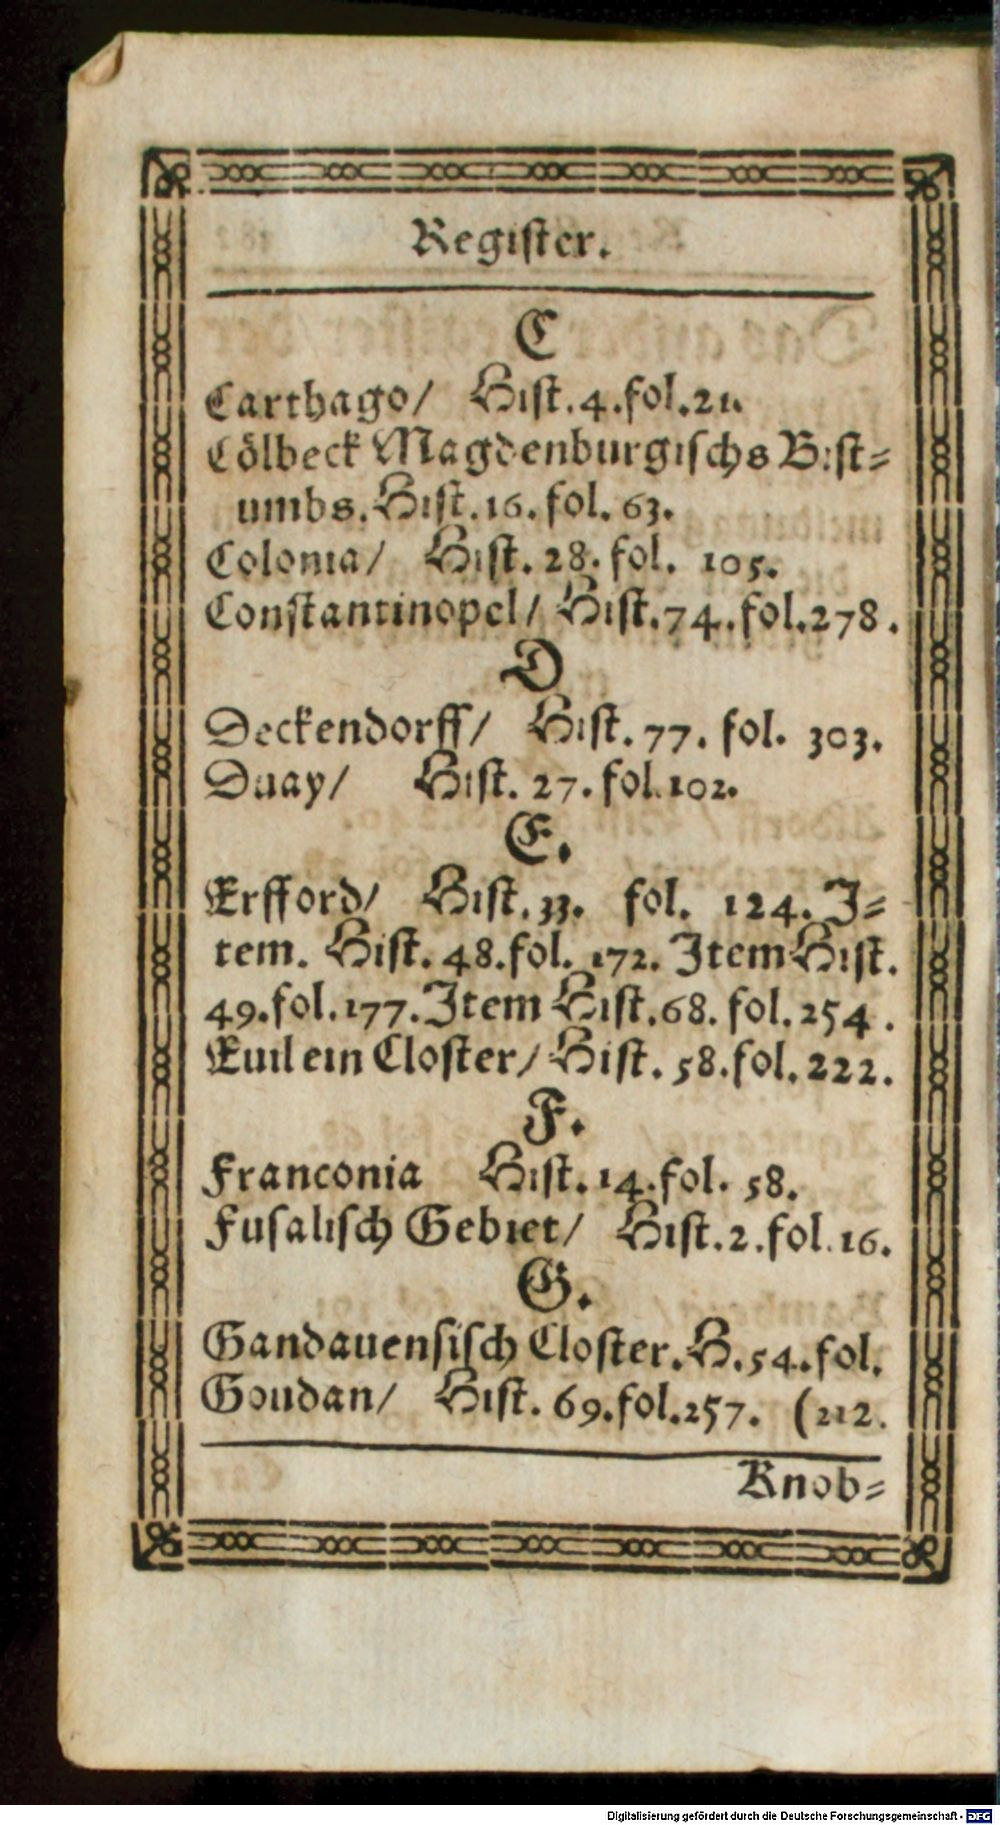 Regiſter.
C
Carthago/ Hiſt. 4. fol. 21.
Cölbeck Magdenburgiſchs Biſt⸗
umbs. Hiſt. 16. fol. 63.
Colonia/ Hiſt. 28. fol. 105.
Conſtantinopel/ Hiſt. 74. fol. 278.
D
Deckendorff/ Hiſt. 77. fol. 303.
Duay/ Hiſt. 27. fol. 102.
E.
Erfford/ Hiſt. 33. fol. 124. J⸗
tem. Hiſt. 48. fol. 172. Jtem Hiſt.
49. fol. 177. Jtem Hiſt. 68. fol. 254.
Euil ein Cloſter/ Hiſt. 58. fol. 222.
F.
Franconia Hiſt. 14. fol. 58.
Fuſaliſch Gebiet/ Hiſt. 2. fol. 16.
G.
Gandauenſiſch Cloſter. H. 54. fol.
Goudan/ Hiſt. 69. fol. 257. (212.
Knob⸗
Digitalisierung gefördert durch die Deutsche Forschungsgemeinschaft - DFG